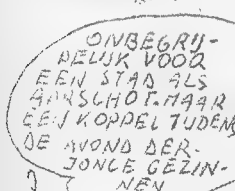 ONBEGRIJ-
PELIJK VOOR
EEN STAD ALS
AARSCHOT. MAAR
EEN KOPPEL TIJDENS
DE AVOND DER
JONGE GEZIN-
NEN